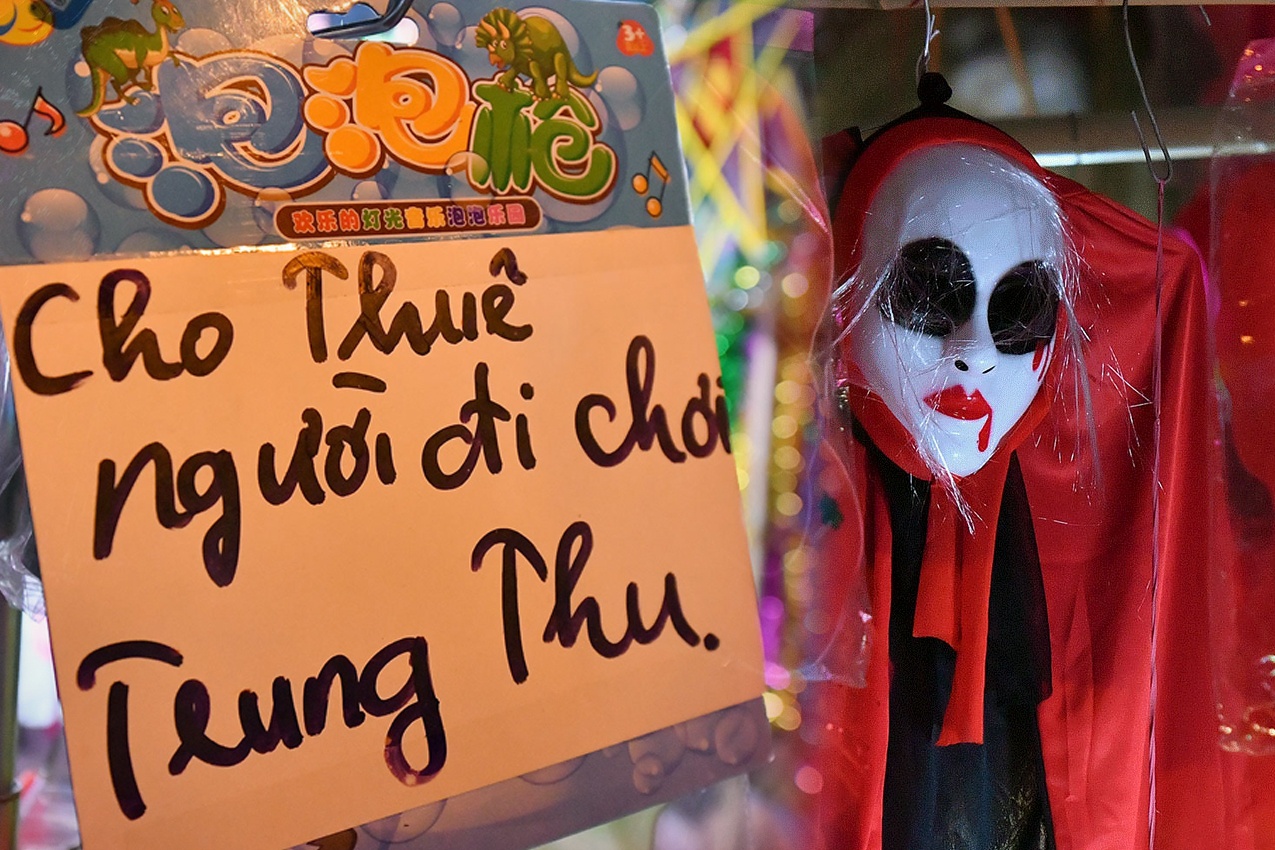 3+
泡泡槍
欢乐的灯光音乐泡泡乐园
Cho Thuê
người đi chơi
Trung Thu.